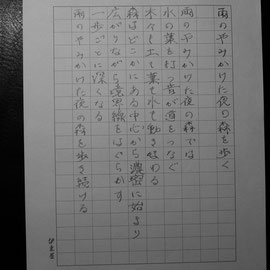 雨のやみかけた夜の森を歩く
雨のやみかけた夜の森では
水の葉を打つ音が道をつなぐ
木々も土も葉も水も動き蛙わる
森はどこかにある中心から濃密に始まり
広がりながら境界線をはぐらかす
一形ごとに深くなる
雨のやみかけた夜の森を歩き続ける